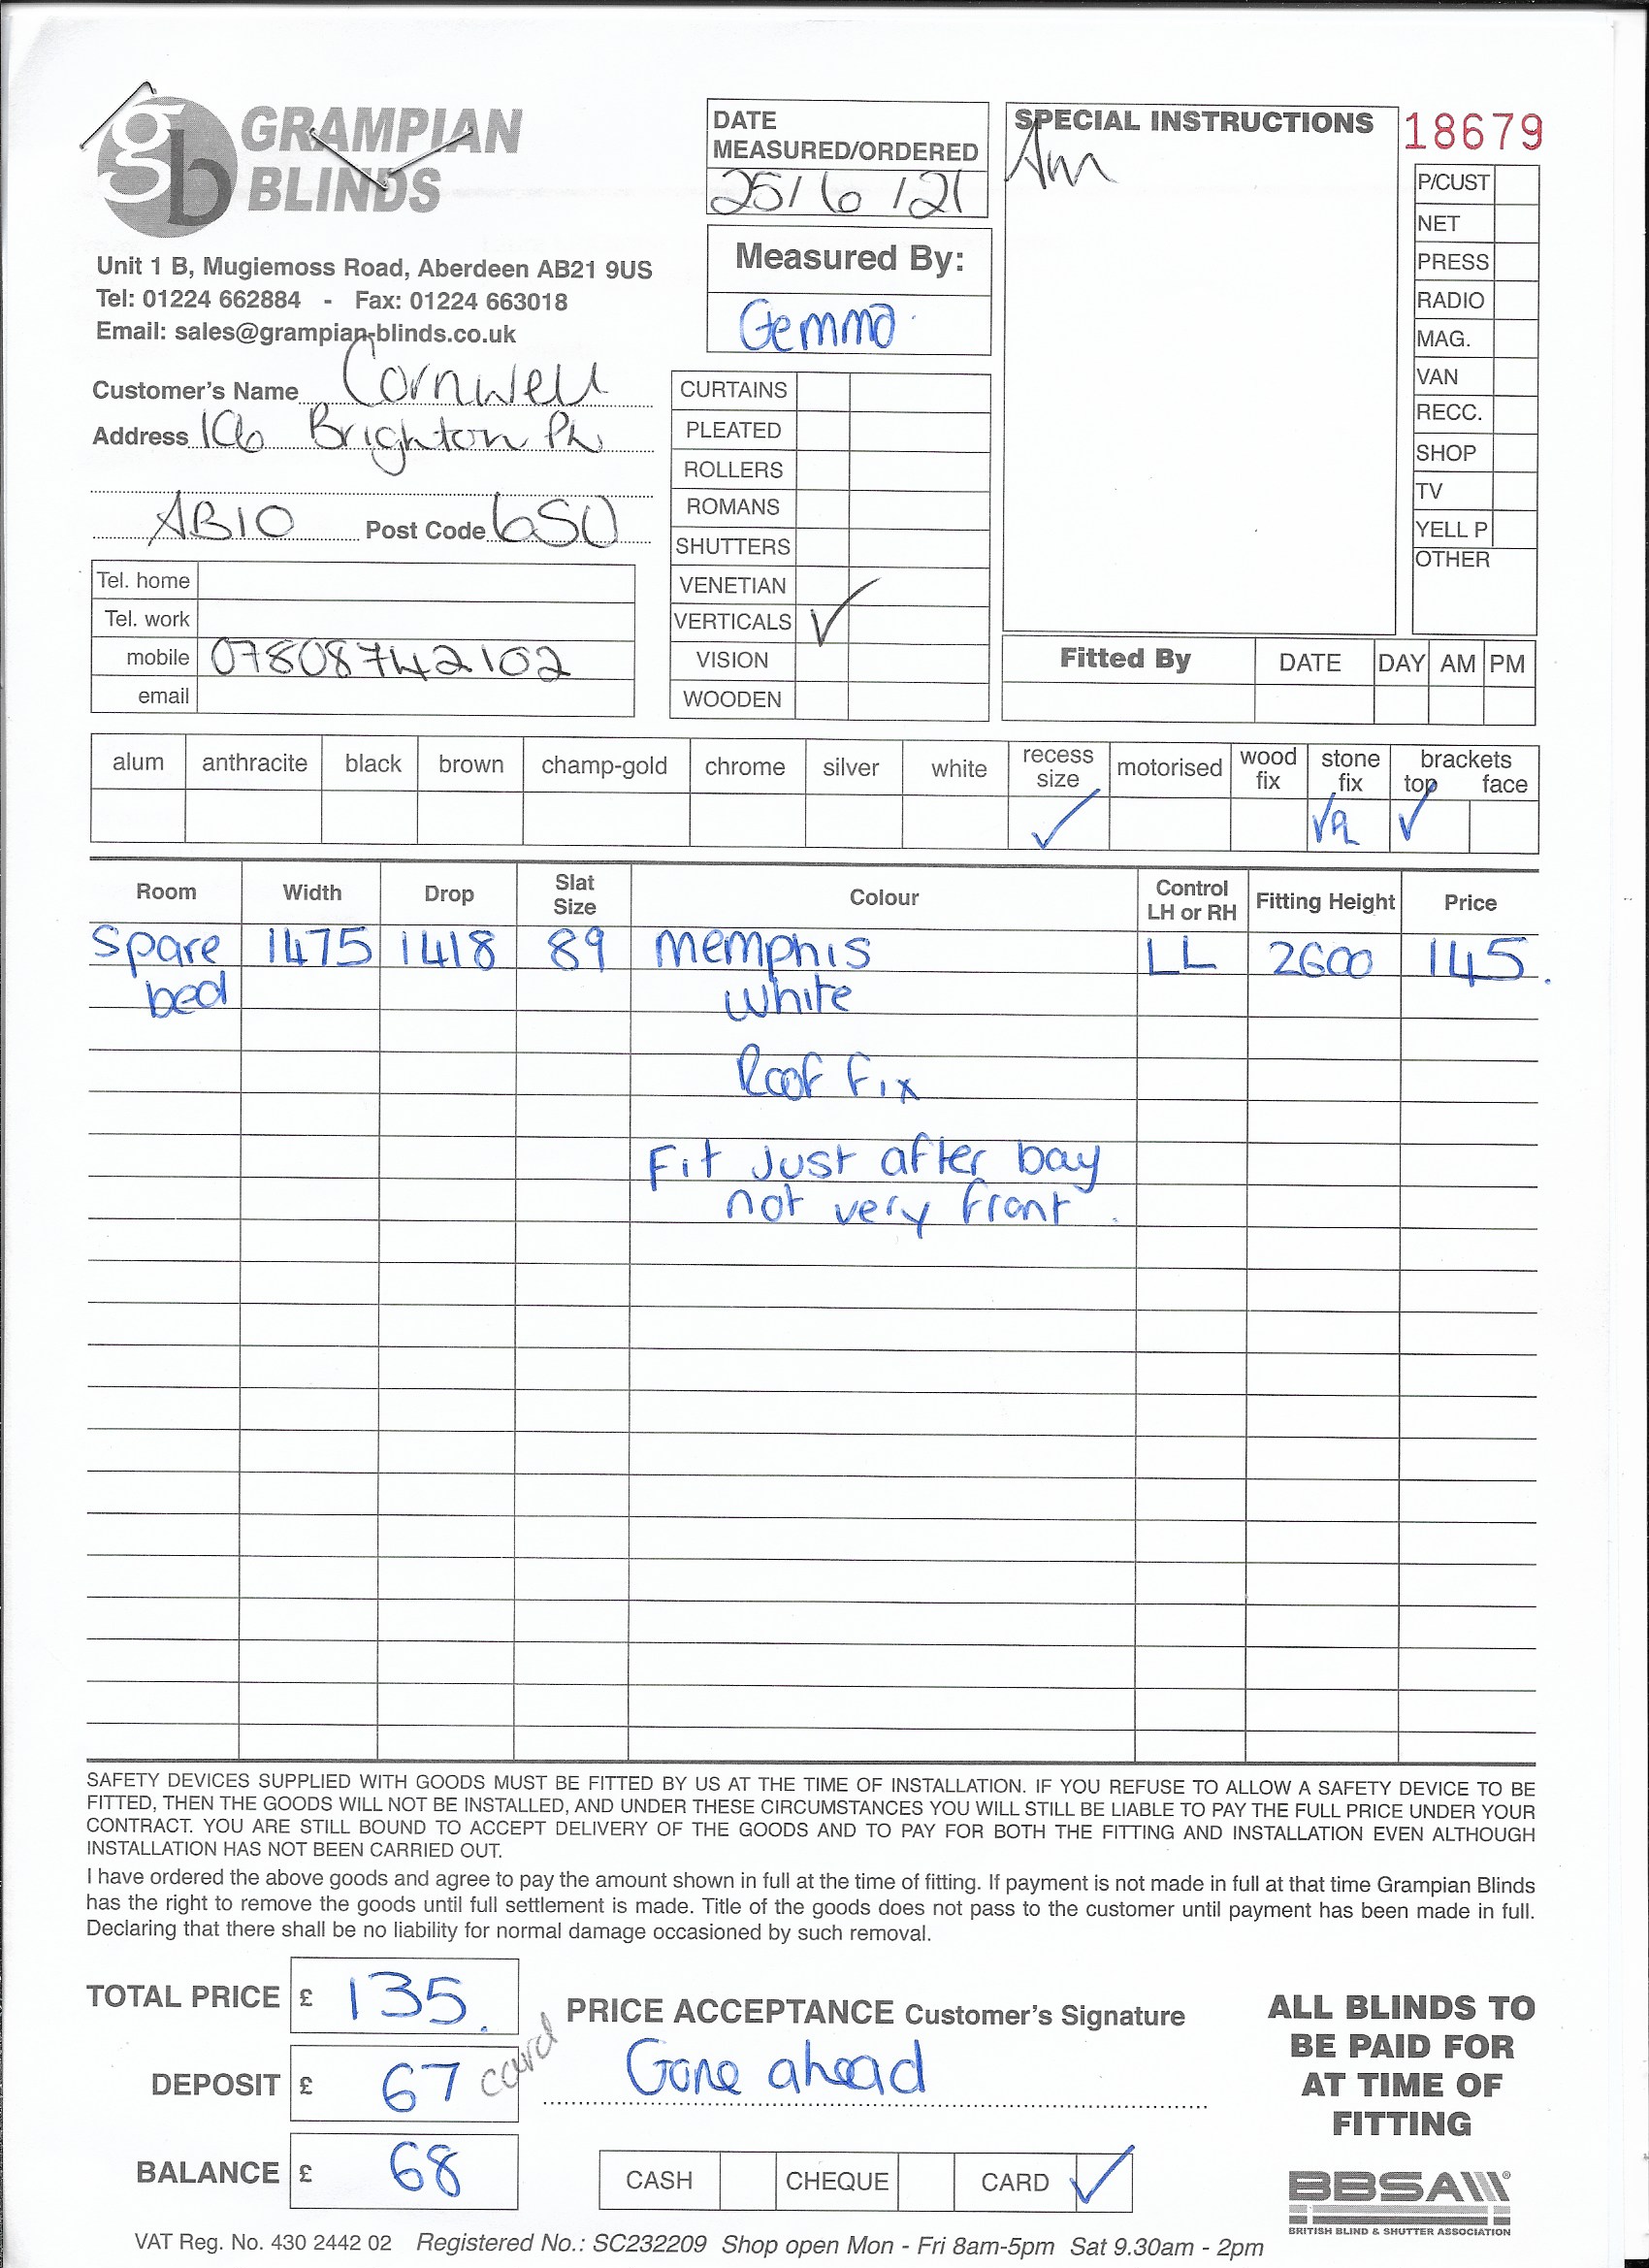 gb GRAMPIAN
BLINDS
Unit 1 B, Mugiemoss Road, Aberdeen AB21 9US
Tel: 01224 662884 - Fax: 01224 663018
Email: sales@grampian-blinds.co.uk
Customer's Name Cornwell
Address 106 Brighton Pl
AB10 Post Code 6SU
Tel. home
Tel. work
mobile 07808742102
email
DATE
MEASURED/ORDERED
25/6/21
Measured By:
Gemma
CURTAINS
PLEATED
ROLLERS
ROMANS
SHUTTERS
VENETIAN
VERTICALS ✓
VISION
WOODEN
SPECIAL INSTRUCTIONS
Am
18679
P/CUST
NET
PRESS
RADIO
MAG.
VAN
RECC.
SHOP
TV
YELL P
OTHER
Fitted By DATE DAY AM PM
alum anthracite black brown champ-gold chrome silver white recess size motorised wood fix stone fix brackets top face
✓ ✓ ✓
Room Width Drop Slat Size Colour Control LH or RH Fitting Height Price
Spare 1475 1418 89 Memphis LL 2600 145.
bed white
Roof Fix
Fit just after bay
not very front.
SAFETY DEVICES SUPPLIED WITH GOODS MUST BE FITTED BY US AT THE TIME OF INSTALLATION. IF YOU REFUSE TO ALLOW A SAFETY DEVICE TO BE
FITTED, THEN THE GOODS WILL NOT BE INSTALLED, AND UNDER THESE CIRCUMSTANCES YOU WILL STILL BE LIABLE TO PAY THE FULL PRICE UNDER YOUR
CONTRACT. YOU ARE STILL BOUND TO ACCEPT DELIVERY OF THE GOODS AND TO PAY FOR BOTH THE FITTING AND INSTALLATION EVEN ALTHOUGH
INSTALLATION HAS NOT BEEN CARRIED OUT.
I have ordered the above goods and agree to pay the amount shown in full at the time of fitting. If payment is not made in full at that time Grampian Blinds
has the right to remove the goods until full settlement is made. Title of the goods does not pass to the customer until payment has been made in full.
Declaring that there shall be no liability for normal damage occasioned by such removal.
TOTAL PRICE £ 135.
DEPOSIT £ 67 card
BALANCE £ 68
PRICE ACCEPTANCE Customer's Signature
Gone ahead
CASH CHEQUE CARD ✓
ALL BLINDS TO
BE PAID FOR
AT TIME OF
FITTING
BBSA
BRITISH BLIND & SHUTTER ASSOCIATION
VAT Reg. No. 430 2442 02 Registered No.: SC232209 Shop open Mon - Fri 8am-5pm Sat 9.30am - 2pm